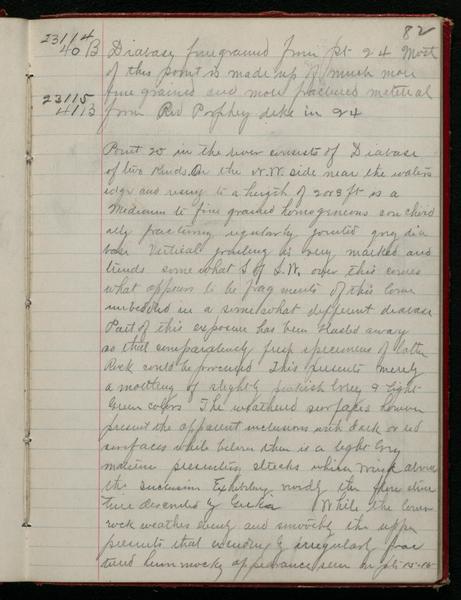 82
23114
40 B Diabase fine grained from pt 24 Most
of this point is made up of much more
fine grained and more fractured material
23115
4113 from Red Porphry dike in 24
Point 25 in the river consists of Diabase
of two kinds. On the N.W. side near the waters
edge and rising to a height of 2 or 3 ft is a
Medium to fine grained homogeneous conchoid
ally fracturing regularly jointed grey dia
base Vertical jointing is very marked and
trends somewhat S of S.W, over this comes
what appears to be fragments of this lower
imbedded in a somewhat different diabase
Part of this exposure has been blasted away
so that comparatively fresh specimens of latter
Rock could be procured This presents merely
a mottling of slightly pinkish Grey & light
Green colors The weathered surfaces however
present the apparent inclusions with dark or red
surfaces while between them is a light Grey
matrix presenting streaks which wind about
the inclusion Exhibiting the
described by While the lower
rock weathers evenly and smoothly the upper
presents that exceedingly irregularly frac
tured hummocky appearance seen in pts 15-16-